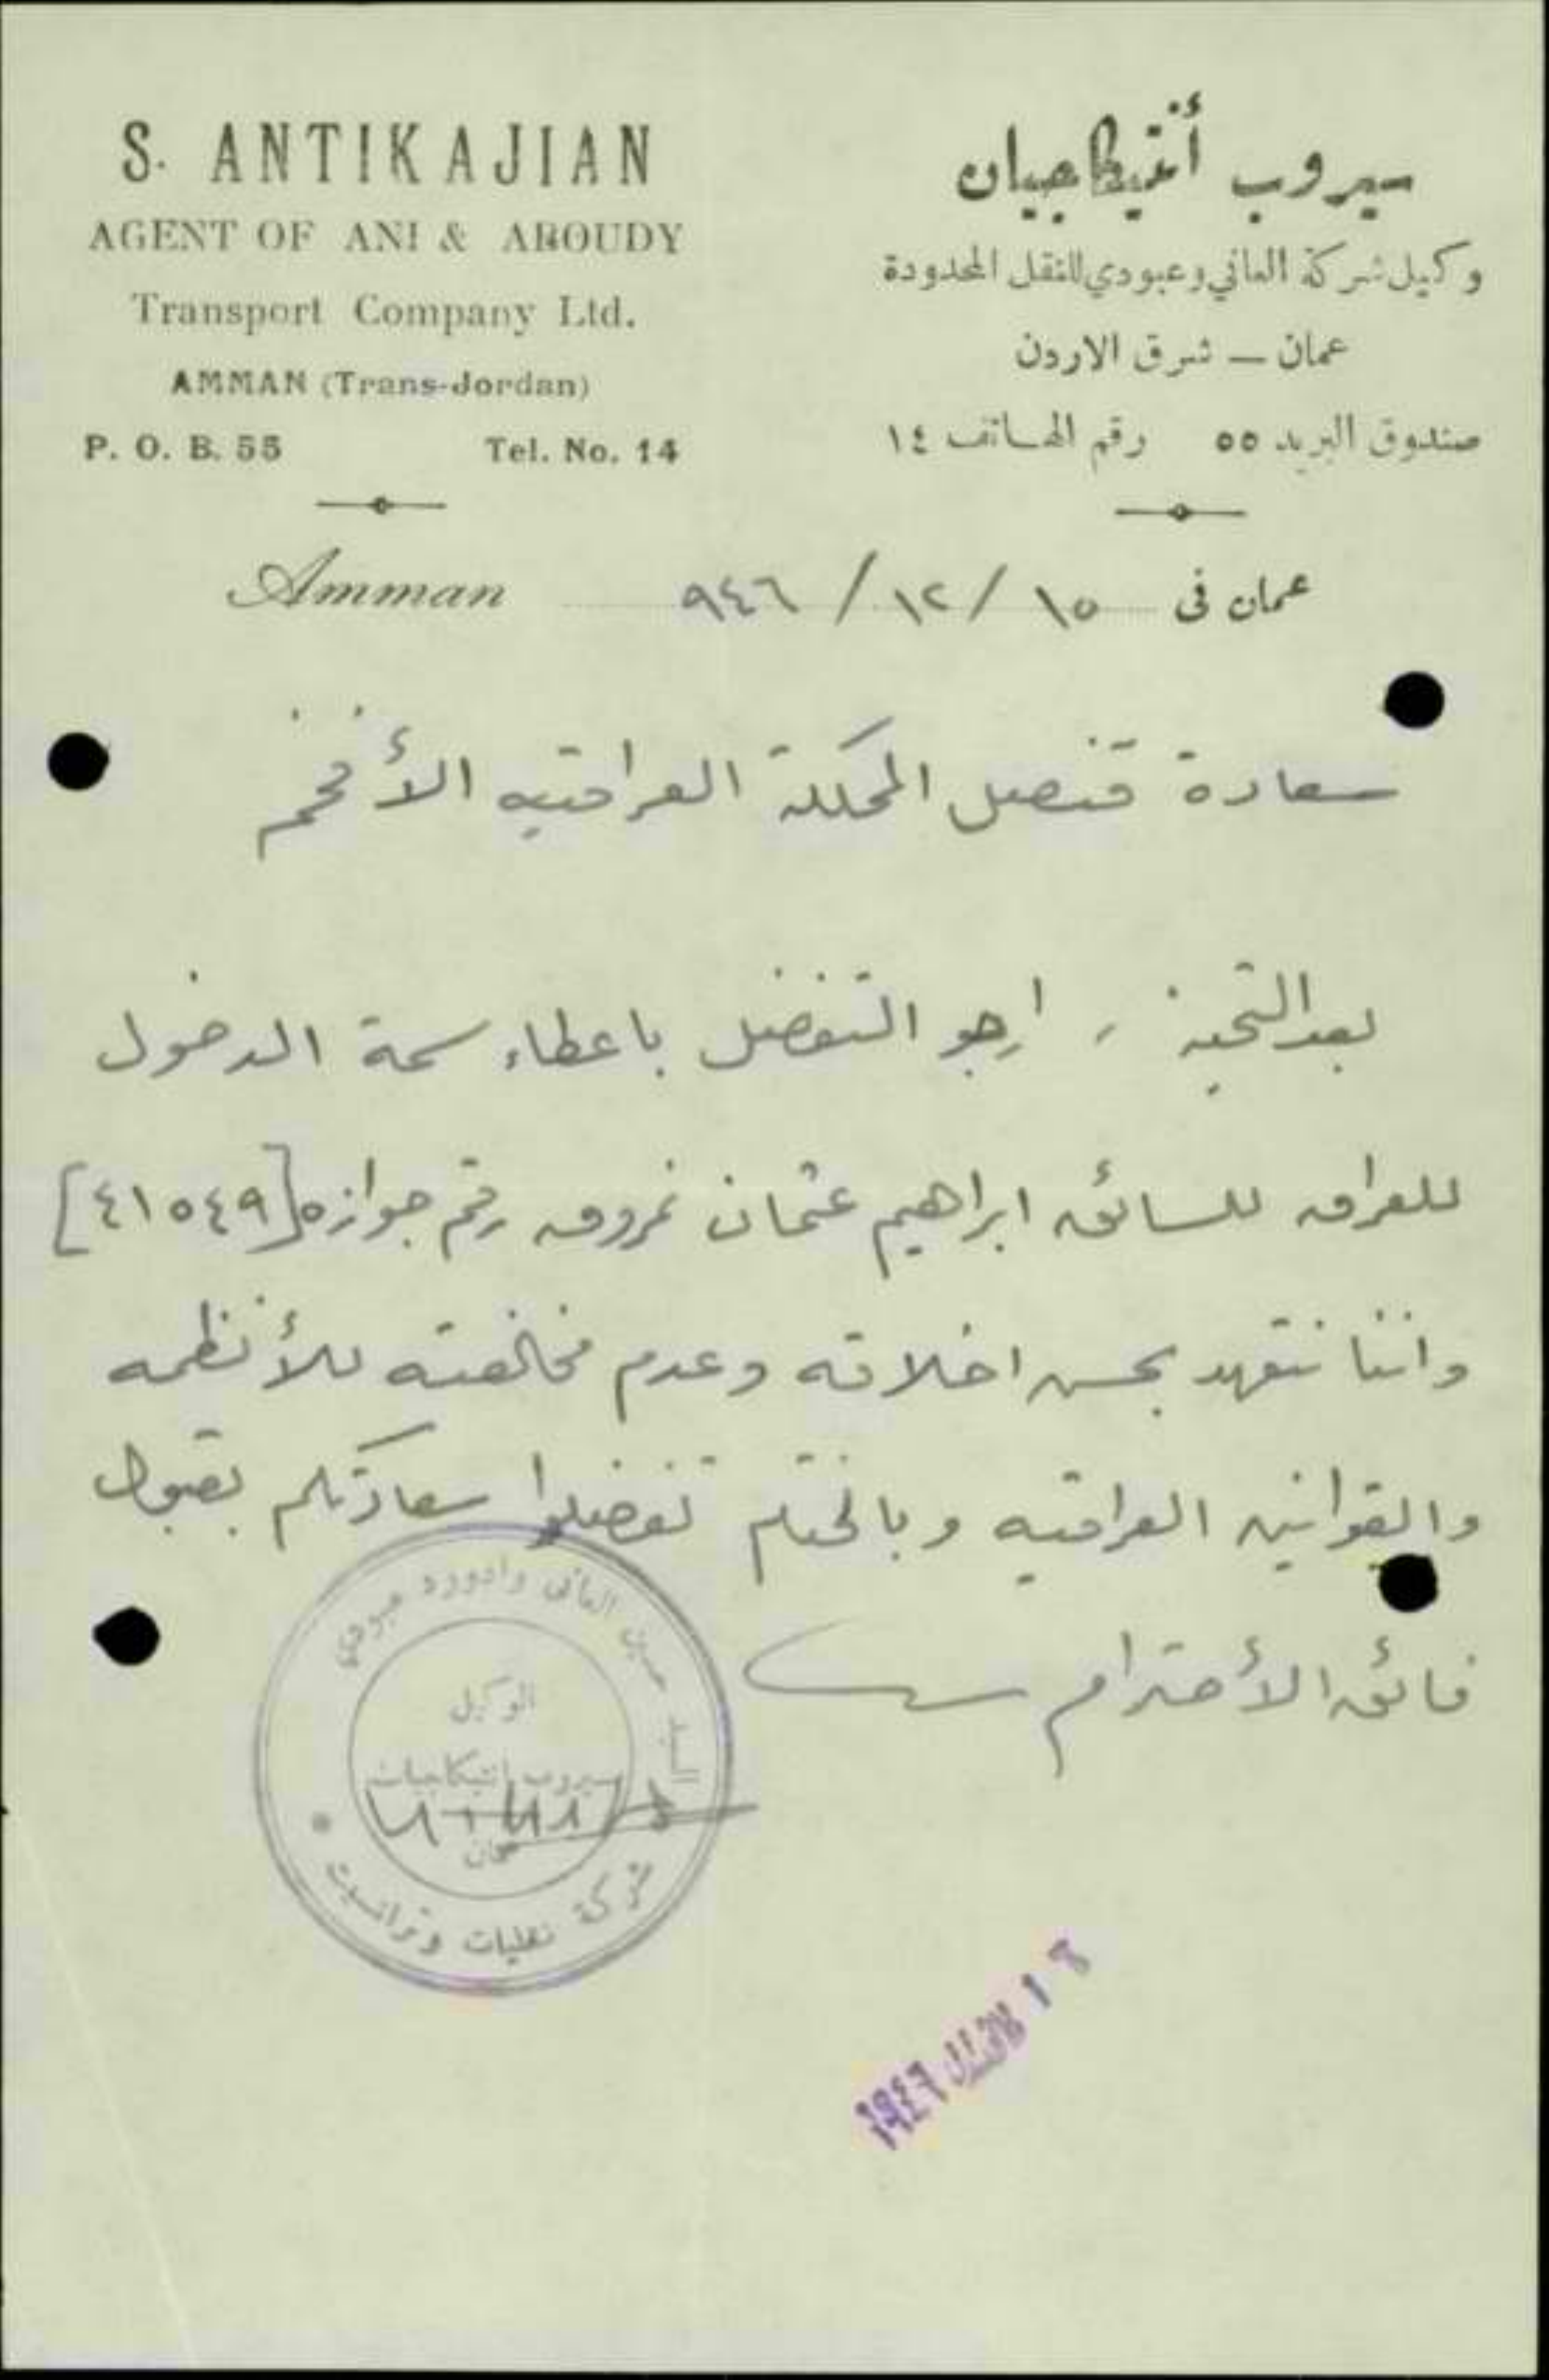 S. ANTIKAJIAN
AGENT OF ANI & ABOUDY
Transport Company Ltd.
AMMAN (Trans-Jordan)
P. O. B. 55 Tel. No. 14
سيروب أنتيكاجيان
وكيل شركة العاني وعبودي للنقل المحدودة
عمان — شرق الاردن
صندوق البريد ٥٥ رقم الهاتف ١٤
Amman
عمان في ١٥ / ١٢ / ٩٤٦
سعادة قنصل المملكة العراقيه الأفخم
بعد التحية ، ارجو التفضل باعطاء سمة الدخول
للعراق للسائق ابراهيم عثمان نمروق رقم جوازه [٤١٥٤٩]
واننا نتعهد بحسن اخلاقه وعدم مخالفته للأنظمه
والقوانين العراقيه وبالختام تفضلوا سعادتكم بقبول
فائق الأحترام
السيد حسين العاني وادوورد عبودي
الوكيل
سيروب انتيكاجيان
عمان
شركة نقليات وترانسيت
١٩٤٦